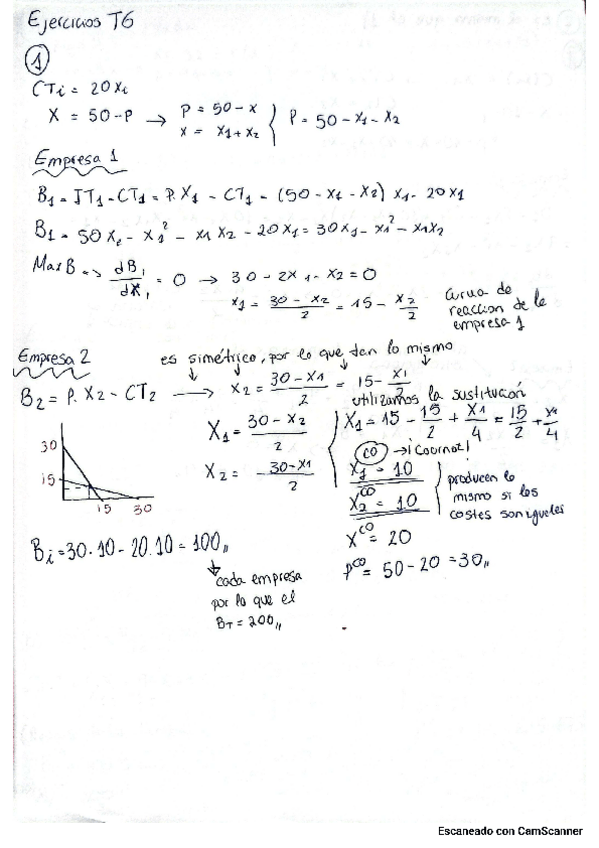 Ejercicios T6
①
CTi = 20xi
X = 50-P → P = 50-x
x = x1+x2 } P = 50-x1-x2
Empresa 1
B1 = IT1 - CT1 = P.X1 - CT1 = (50-x1-x2) x1 - 20x1
B1 = 50x1 - x1² - x1x2 - 20x1 = 30x1 - x1² - x1x2
Max B => dB1/dX1 = 0 → 30-2x1-x2 = 0
x1 = (30-x2)/2 = 15 - x2/2
Curva de
reaccion de la
empresa 1
Empresa 2
es simétrico, por lo que dan lo mismo
B2 = P.X2 - CT2 → x2 = (30-x1)/2 = 15 - x1/2
utilizamos la sustitución
X1 = (30-x2)/2
X2 = (30-x1)/2
X1 = 15 - 15/2 + x1/4 = 15/2 + x1/4
CO → ¡Cournot!
x1 = 10
x2^CO = 10
producen lo
mismo si los
costes son iguales
X^CO = 20
P^CO = 50-20 = 30,,
30
15
15 30
Bi = 30.10 - 20.10 = 100,,
cada empresa
por lo que el
BT = 200,,
Escaneado con CamScanner